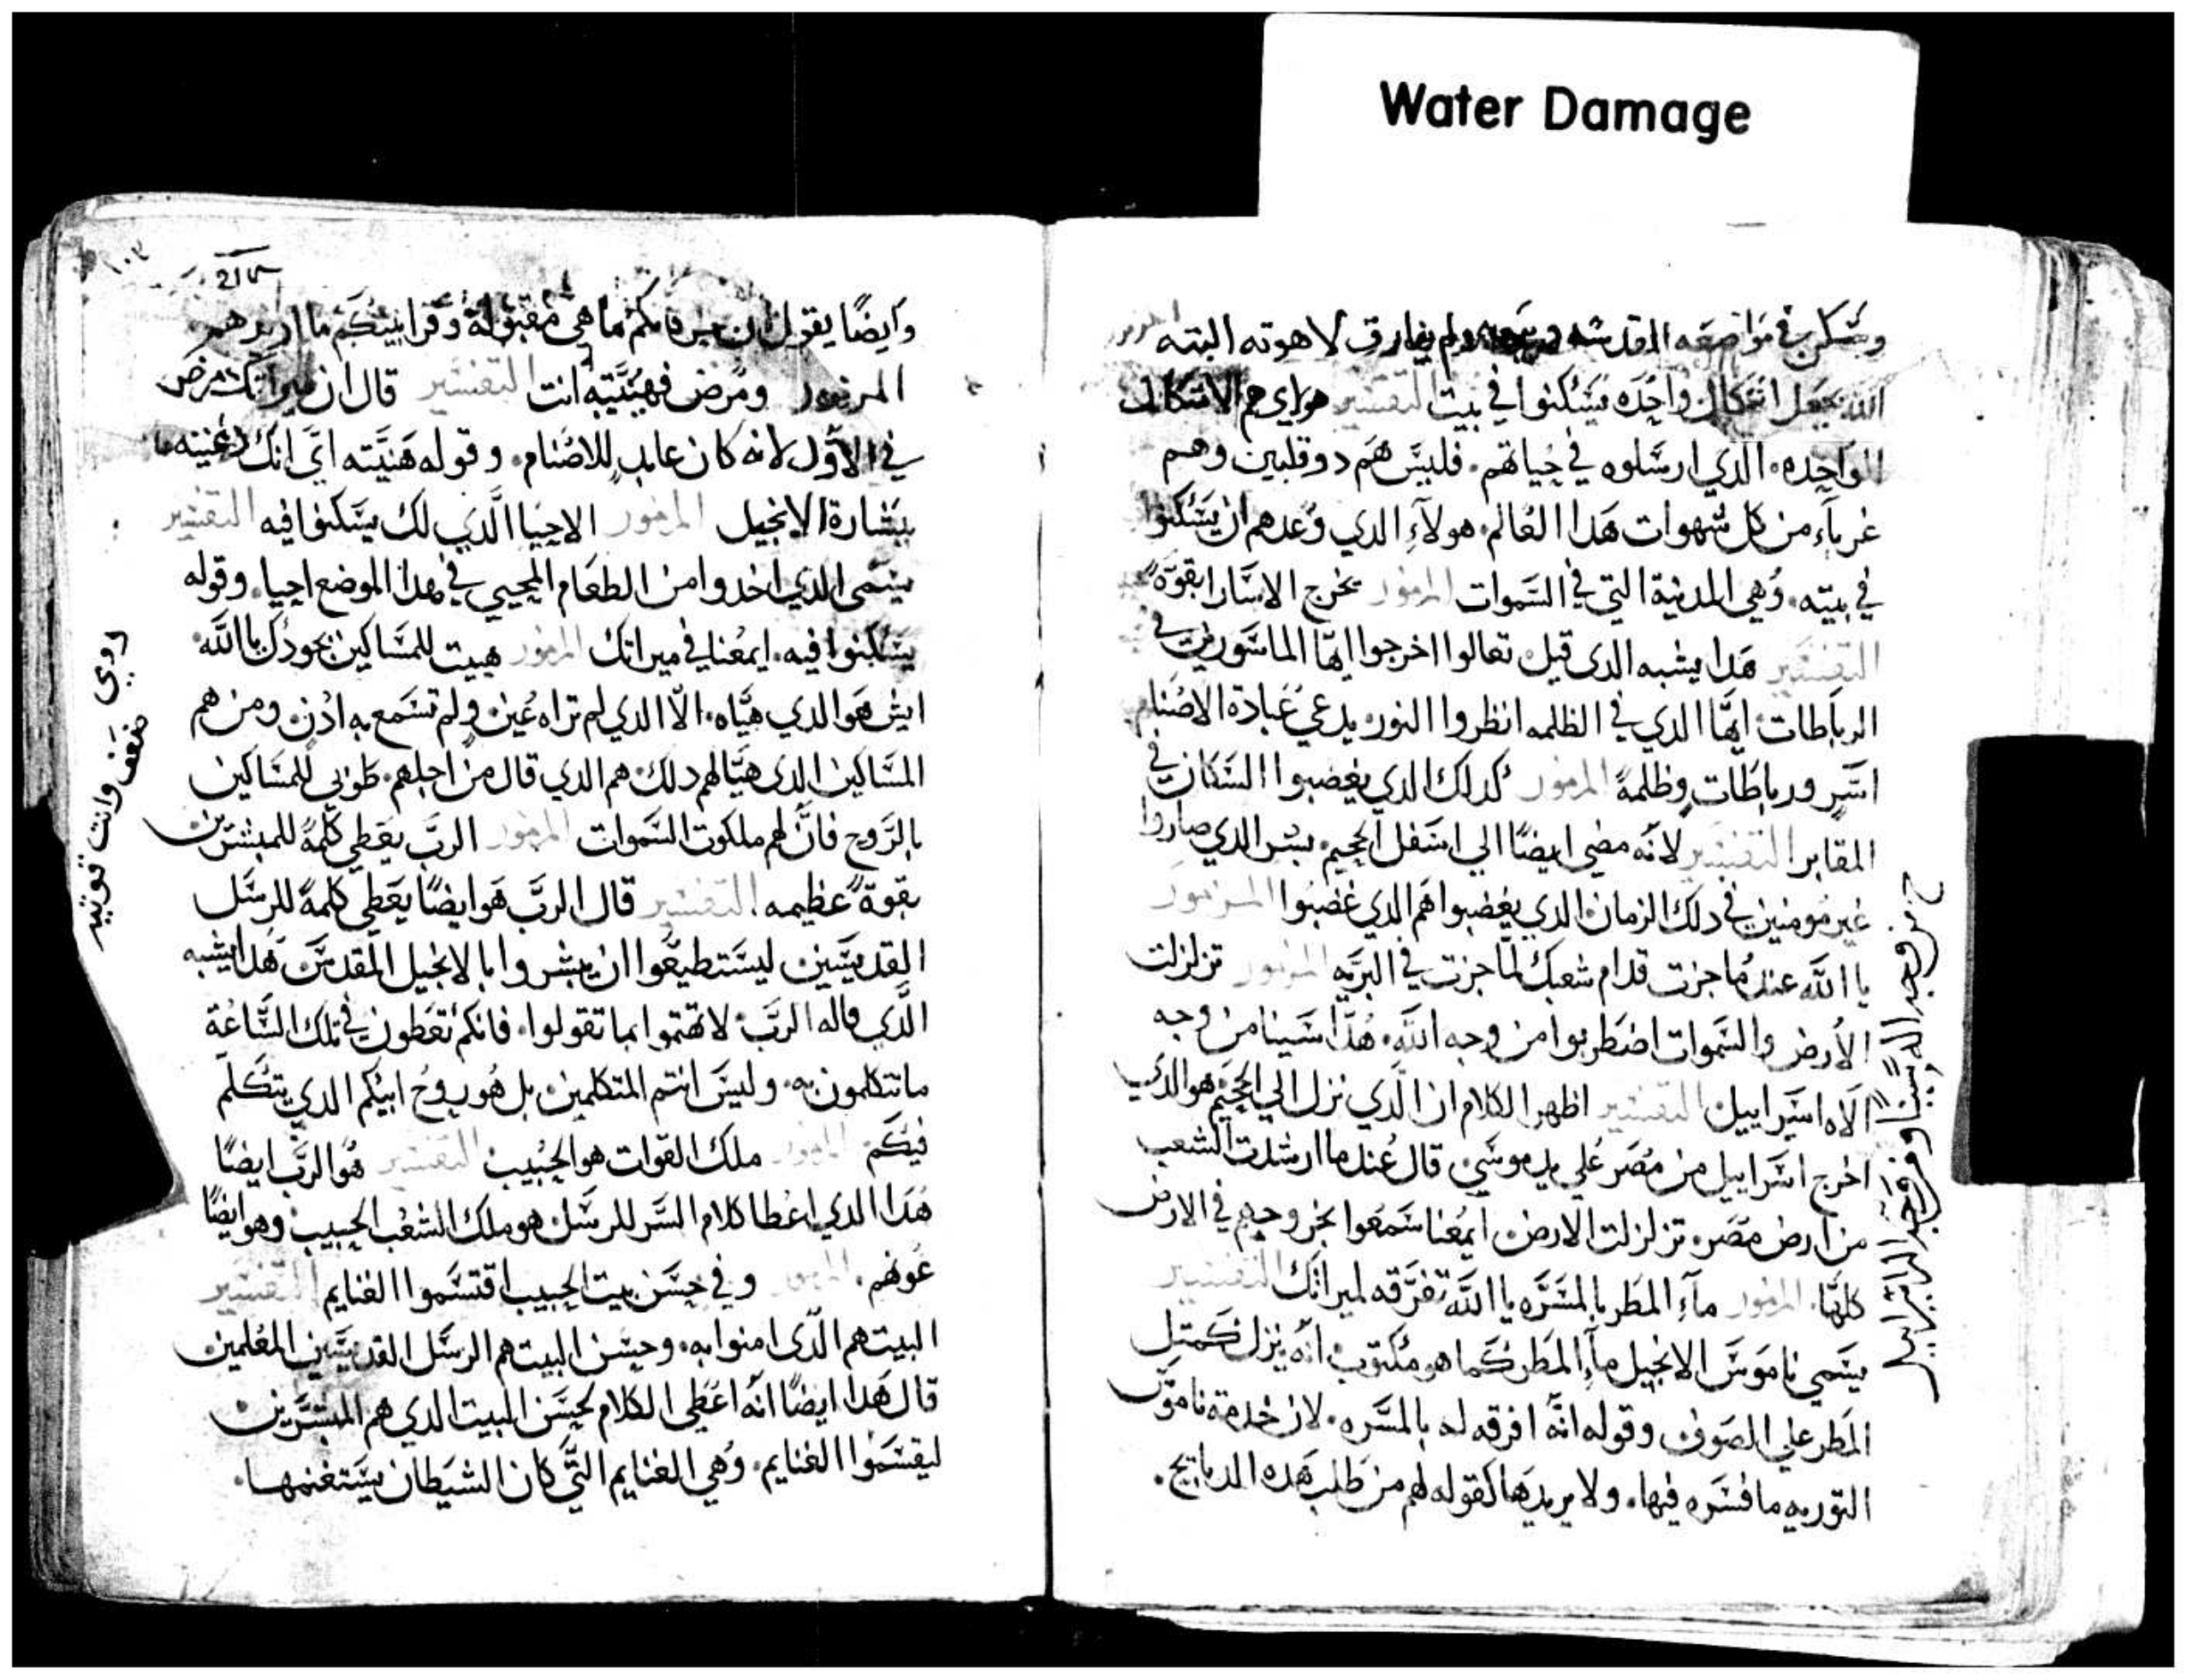 Water Damage
وسكن في مواضعه المقدسه ولم يفارق لاهوته البته
الله يجعل اشكال واحده يسكنوا في بيت التفسير هولاي هم الاشكال
الواحده الدي ارسلوه في حياتهم فليس هم دو قلبين وهم
غرباء من كل شهوات هدا العالم هولاء الدي وعدهم ان يسكنوا
في بيته وهي المدينة التي في السموات المزمور يخرج الاسارا بقوة
التفسير هدا يشبه الدى قيل تعالوا اخرجوا ايها الماسورين في
الرباطات ايها الدي في الظلمه انظروا النور يدعي عبادة الاصنام
اسر ورباطات وظلمة المزمور كدلك الدي يغضبوا السكان في
المقابر التفسير لانه مضى ايضا الي اسفل الجحيم بشر الدي صاروا
غير مومنين في دلك الزمان الدي يغضبوا هم الدي غضبوا المزمور
يا الله عندما جزت قدام شعبك لما جزت في البريه المزمور تزلزلت
الارض والسموات اضطربوا من وجه الله هدا سينا من وجه
الاه اسراييل التفسير اظهر الكلام ان الدي نزل الي الجحيم هو الدي
اخرج اسراييل من مصر علي يد موسي قال عندما ارسلت الشعب
من ارض مصر تزلزلت الارض ايمعنا سمعوا بخروجهم في الارض
كلها المزمور ماء المطر بالمسره يا الله تفرقه لميراتك التفسير
يسمي ناموس الانجيل ماء المطر كما هو مكتوب انه ينزل كمتل
المطر علي الصوف وقوله انه افرقه له بالمسره لان خدمة ناموس
التوريه ما فسره فيها ولا يريدها كقوله لهم من طلب هده الدبايح
من وجه اله سينا ومن وجه اله اسراييل
وايضا يقول ان قرابانكم ما هي مقبولة وقرابينكم ما اريدهم
المزمور ومرض فهييته انت التفسير قال ان ميراتك مرض
في الاول لانه كان عابد للاصنام وقوله هنيته اي انك اغنيته
ببشارة الانجيل المزمور الاحيا الدي لك يسكنوا فيه التفسير
يسمى الدي اخدوا من الطعام المحيي في هدا الموضع احيا وقوله
يسكنوا فيه ايمعنا في ميراتك المزمور هييت للمساكين بجودك يا الله
ايش هو الدي هياه الا الدي لم تراه عين ولم تسمع به ادن ومن هم
المساكين الدى هيا لهم دلك هم الدي قال من اجلهم طوبي للمساكين
بالروح فان لهم ملكوت السموات المزمور الرب يعطي كلمة للمبشرين
بقوة عظيمه التفسير قال الرب هو ايضا يعطي كلمة للرسل
القديسين ليستطيعوا ان يبشروا بالانجيل المقدس هدا يشبه
الدي قاله الرب لا تهتموا بما تقولوا فانكم تعطون في تلك الساعة
ما تتكلمون به وليس انتم المتكلمين بل هو روح ابيكم الدي يتكلم
فيكم المزمور ملك القوات هو الحبيب التفسير هو الرب ايضا
هدا الدي اعطا كلام السر للرسل هو ملك الشعب الحبيب وهو ايضا
عونهم المزمور وفي حسن بيت الحبيب اقتسموا الغنايم التفسير
البيت هم الدى امنوا به وحسن البيت هم الرسل القديسين المعلمين
قال هدا ايضا انه اعطي الكلام لحسن البيت الدي هم المبشرين
ليقسموا الغنايم وهي الغنايم التي كان الشيطان يستغنمها
روي
ضعف وانت توتيد